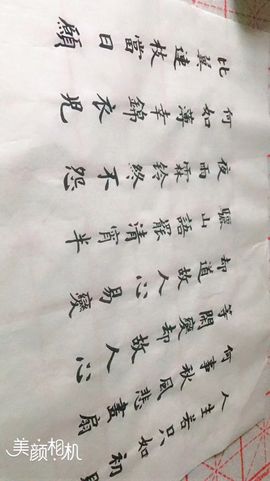 人生若只如初
何事秋風悲畫扇
等閑變却故人心
却道故人心易變
驪山語罷清宵半
夜雨霖鈴終不怨
何如薄幸錦衣兒
比翼連枝當日願
美颜相机